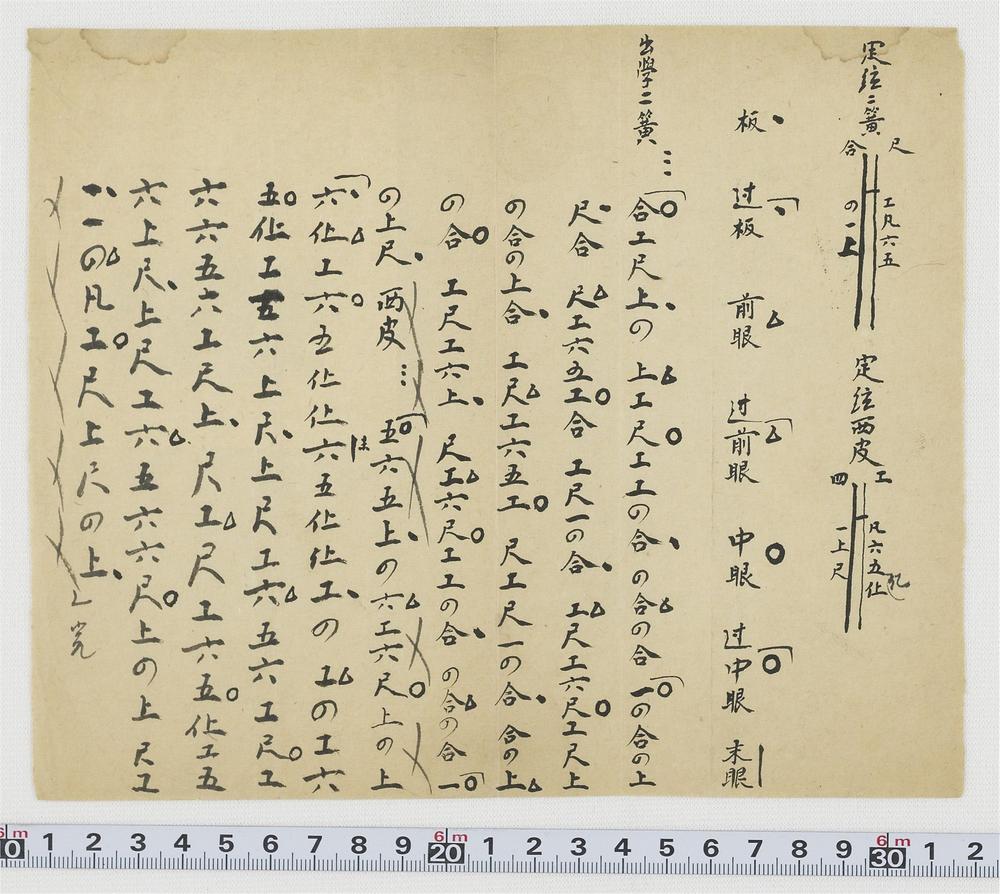 定絃二簧
尺
合
工凡六五
の一上
定絃西皮
工
四
凡六五仩
一上尺
板
过板
前眼
过前眼
中眼
过中眼
末眼
出學二簧
合工尺上の 上工尺工工の合 の合の合 一の合の上
尺合 尺工六五工合 工尺一の合 工尺工六尺工尺上
の合の上合 工尺工六五工 尺工尺一の合 合の上
の合 工尺工六上 尺工六尺工工の合 の合の合一
の上尺 西皮 五六五上の六工六尺上の上
六仩工六五仩仩六五仩仩工の工の工六
五仩工五六上尺上尺工六五六工尺工
六六五六工尺上尺工尺工六五仩工五
六上尺上尺工六五六六尺上の上尺工
一一の凡工尺上尺の上
完
6m 10 1 2 3 4 5 6 7 8 9 6m 20 1 2 3 4 5 6 7 8 9 6m 30 1 2